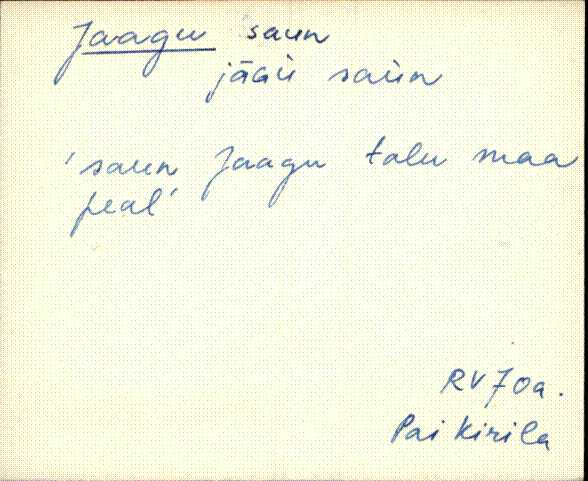 Jaagu saun
jāāǜ saün
'saun Jaagu talu maa
peal'
RV 70a.
Pai Kirila